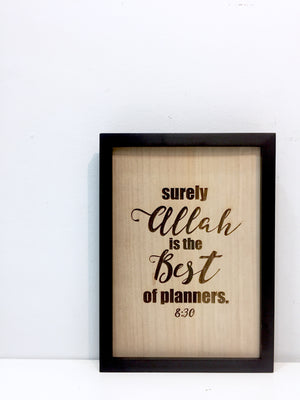 surely
Allah
is the
Best
of planners.
8:30